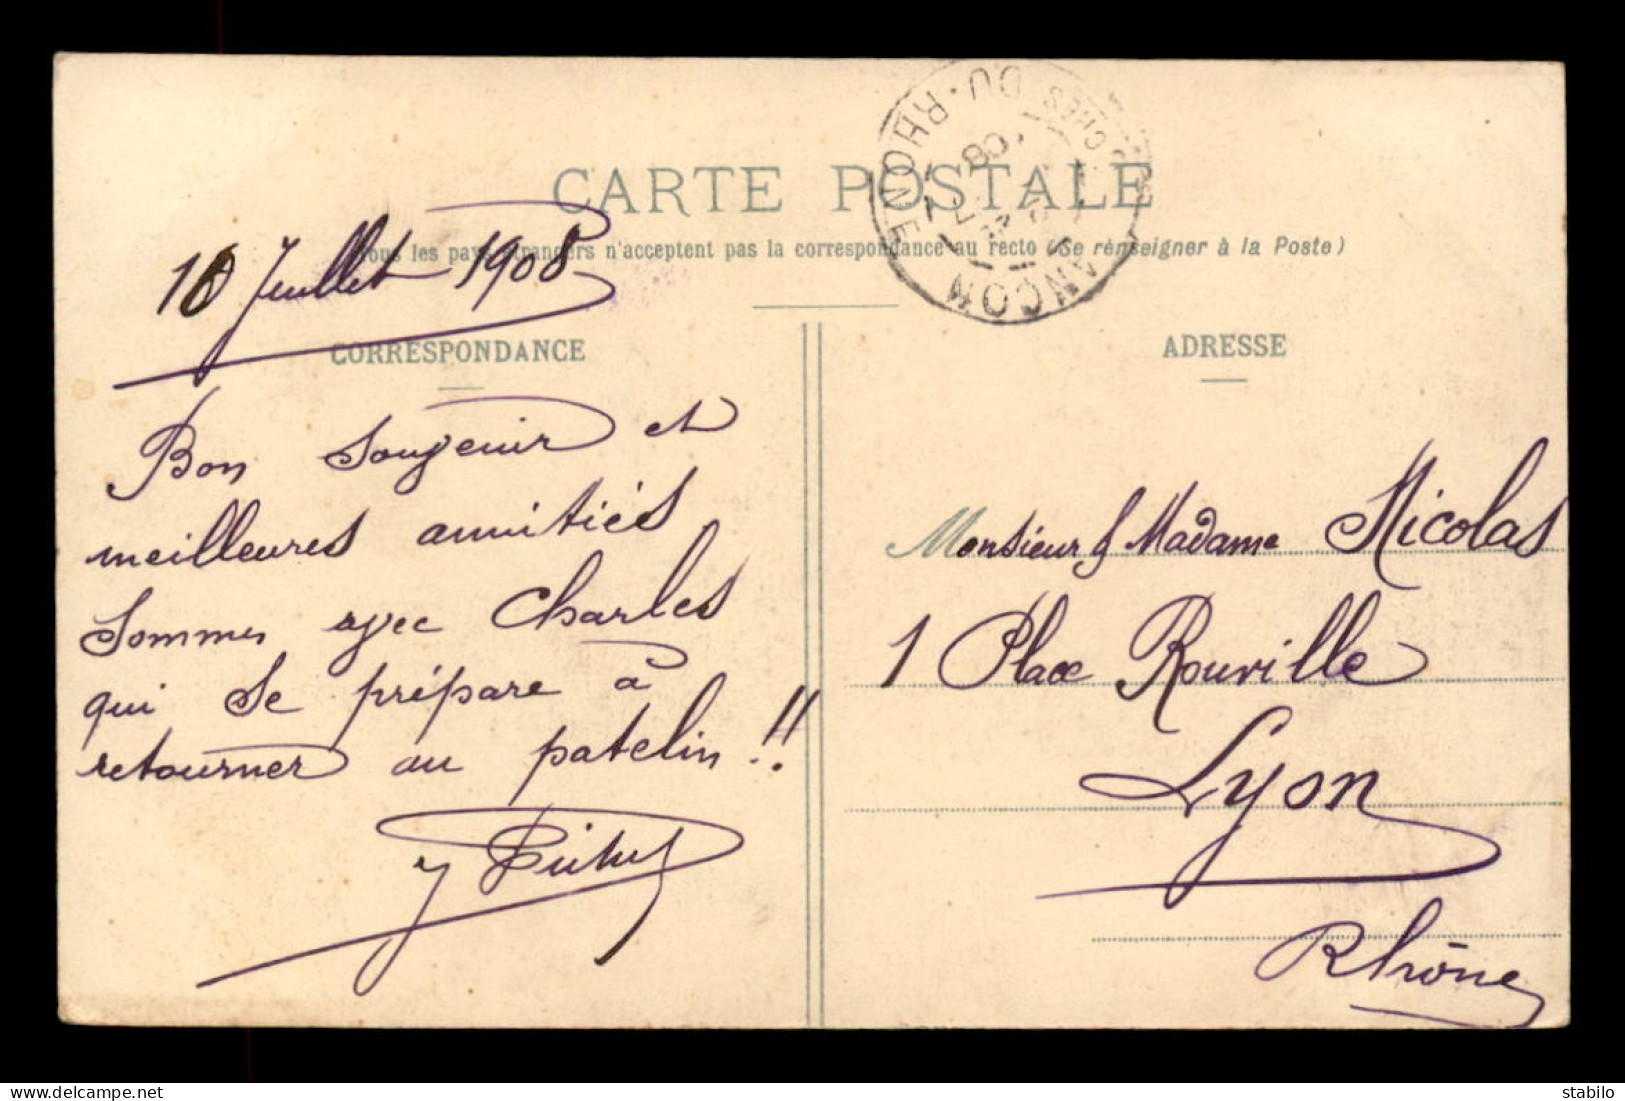 CARTE POSTALE
Tous les pays étrangers n'acceptent pas la correspondance au recto (Se renseigner à la Poste)
LANÇON
CHES DU-RHONE
08
16 Juillet 1908
CORRESPONDANCE
Bon souvenir et
meilleures amitiés
Sommes avec Charles
qui se prépare à
retourner au patelin !!
ADRESSE
Monsieur & Madame Nicolas
1 Place Rouville
Lyon
Rhône
stabilo